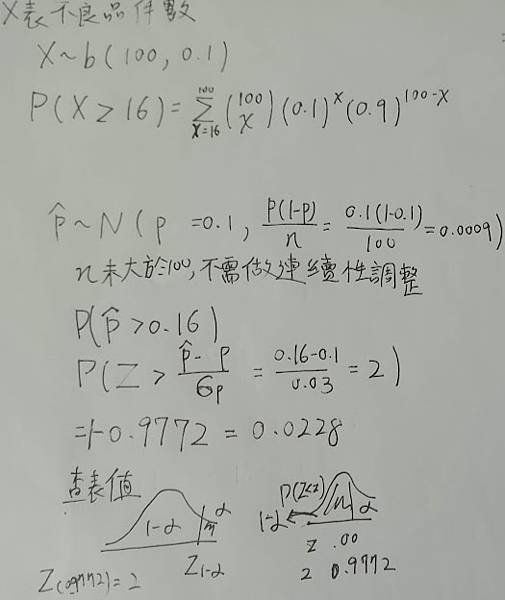 X表不良品件數
X~b(100, 0.1)
P(X≥16)=∑_{X=16}^{100} (100 X)(0.1)^x(0.9)^{100-X}
p̂~N(p =0.1, P(1-P)/n = 0.1(1-0.1)/100 =0.0009)
n未大於100,不需做連續性調整
P(p̂>0.16)
P(Z> (p̂-p)/σp = (0.16-0.1)/0.03 = 2)
=1-0.9772 = 0.0228
查表值
1-α α P(Z<z) 1-α α
Z1-α Z .00
Z(0.9772)=2 2 0.9772